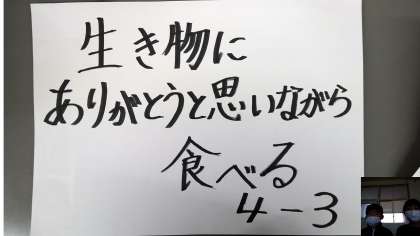 生き物に
ありがとうと思いながら
食べる
4-3